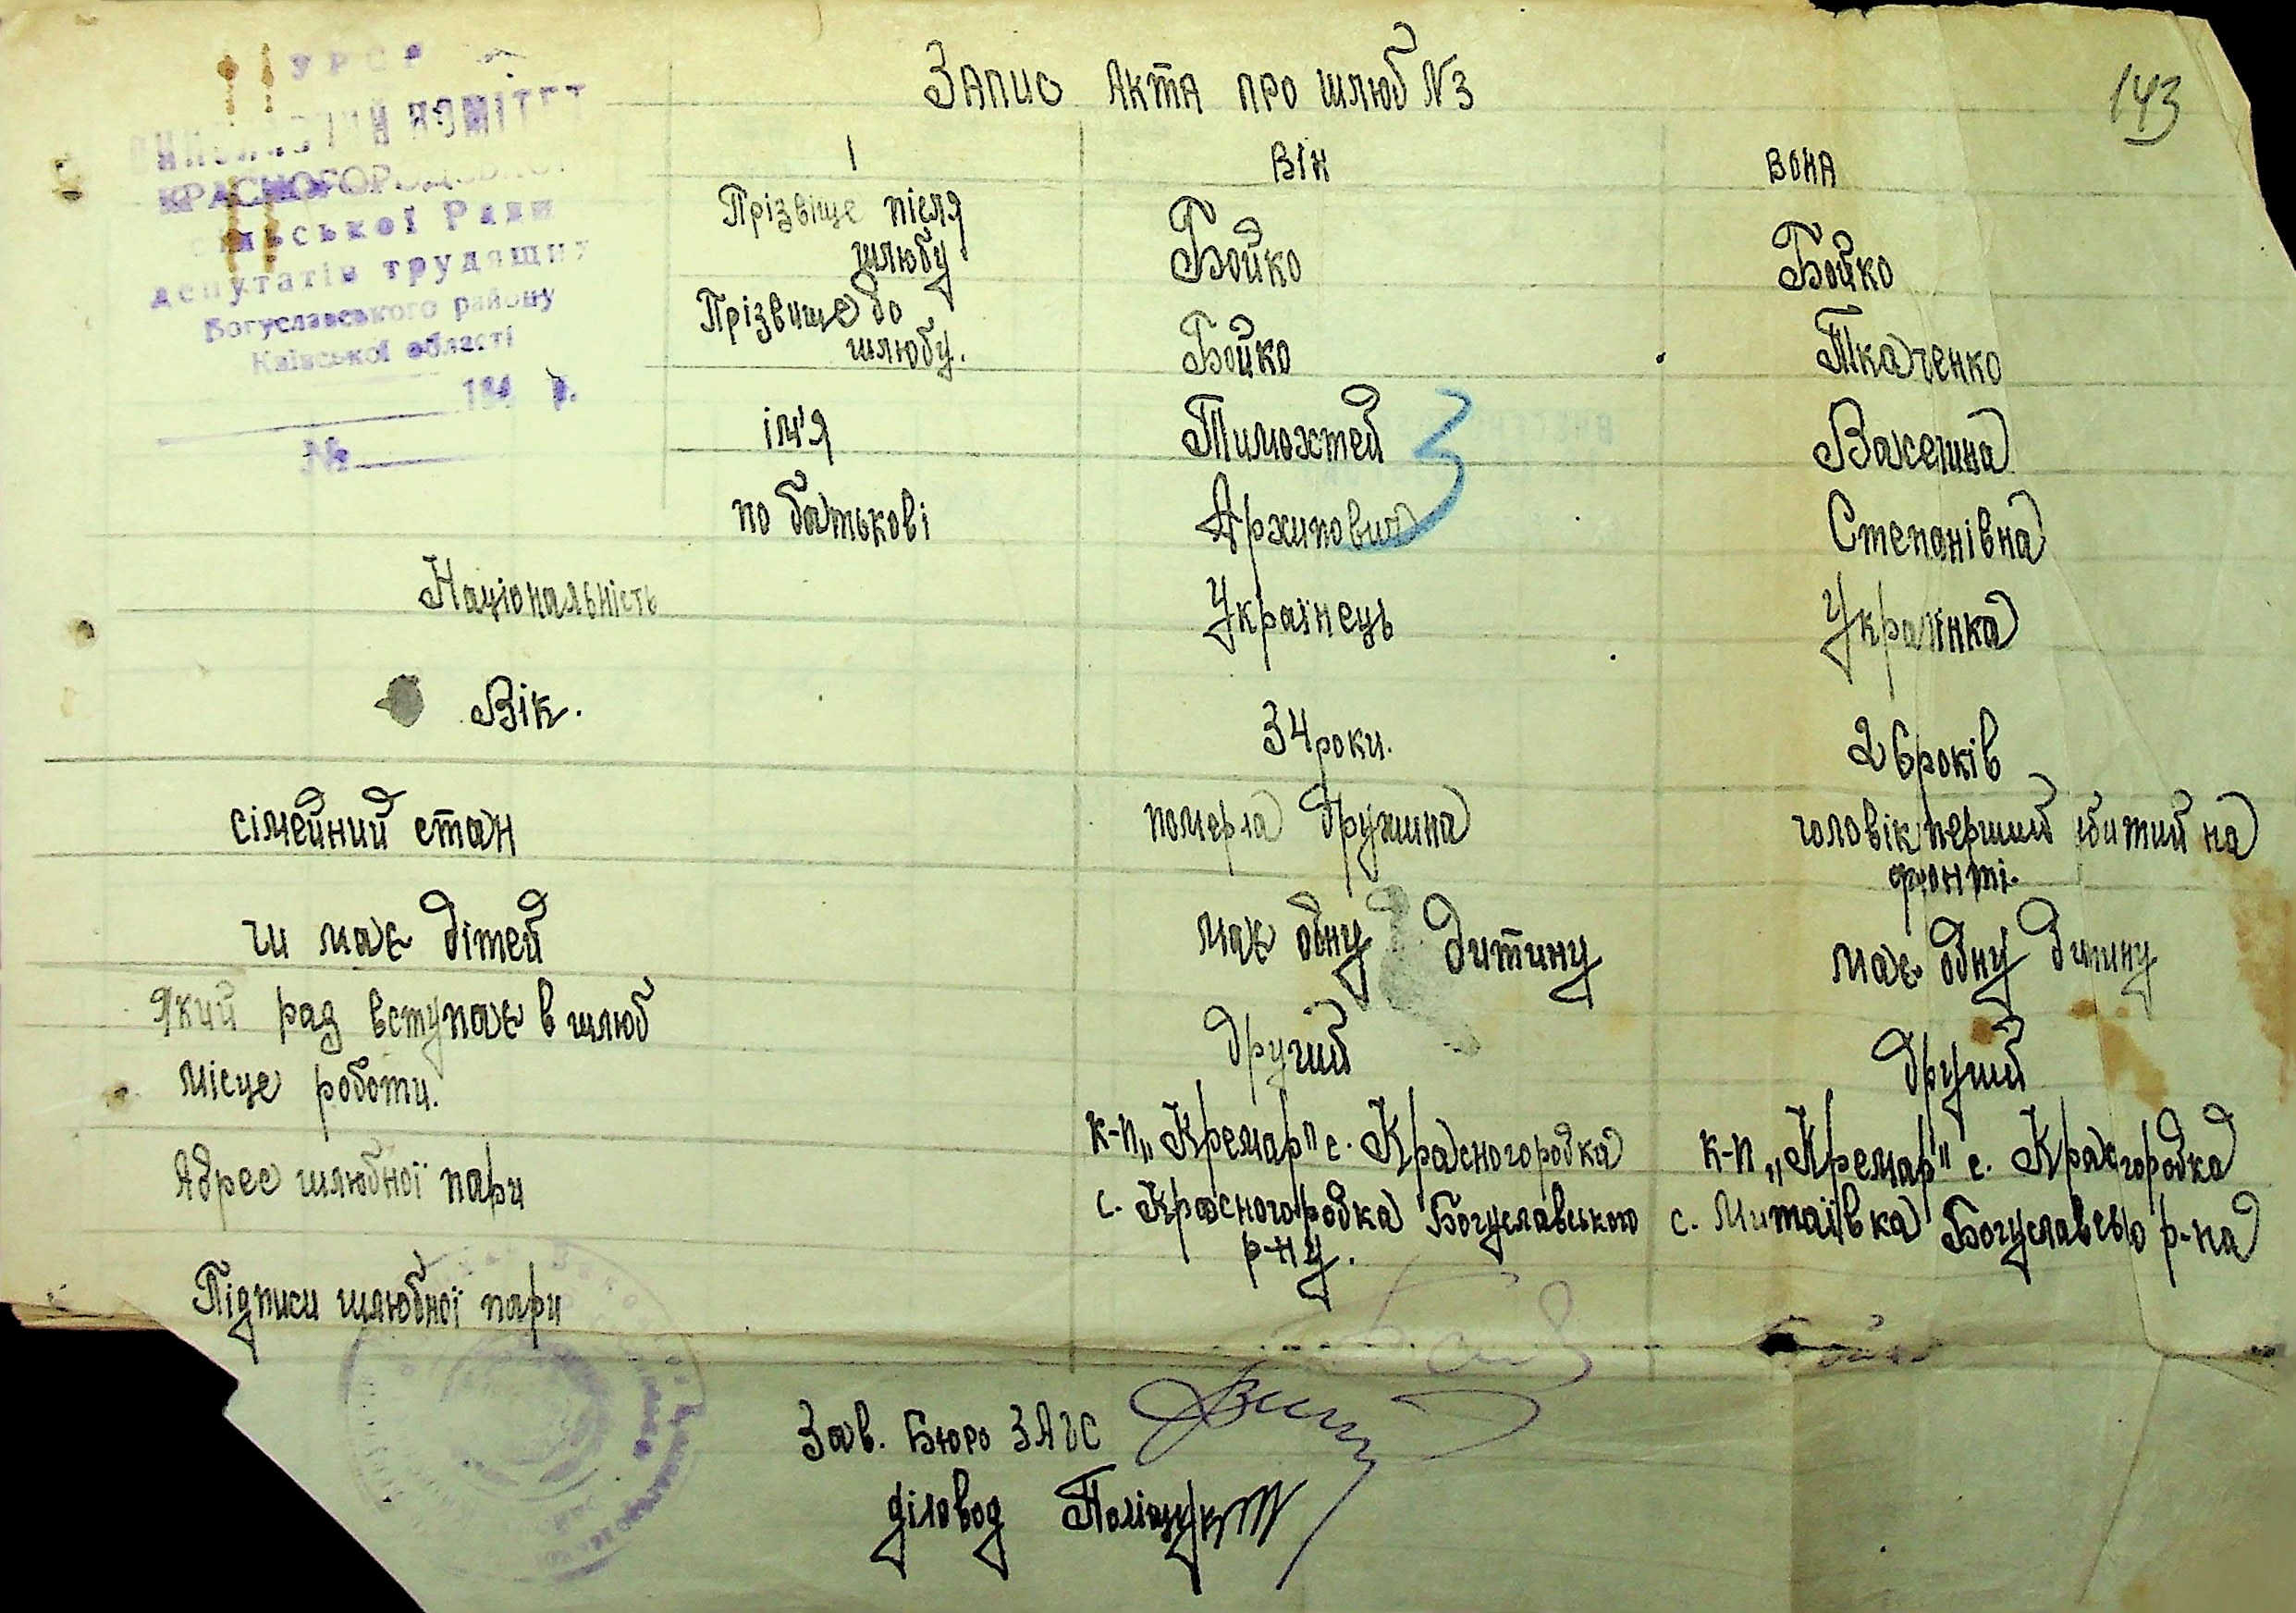 143
УРСР
ВИКОНАВЧИЙ КОМІТЕТ
КРАСНОГОРОДСЬКОЇ
сільської Ради
депутатів трудящих
Богуславського району
Київської області
194 р.
№
Запис акта про шлюб №3
1 він вона
Прізвище після шлюбу Бойко Бойко
Прізвище до шлюбу. Бойко Ткаченко
ім'я Тимохтей Васелина
3
по батькові Архипович Степанівна
Національність Українець Українка
Вік. 34 роки. 26 років
сімейний стан померла дружина чоловік перший вбитий на фронті.
чи має дітей має одну дитину має одну дитину
Який раз вступає в шлюб другий другий
Місце роботи. к-п „Кремар" с. Красногородка к-п „Кремар" с. Красгородка
Адрес шлюбної пари с. Красногородка Богуславського р-ну. с. Митаївка Богуславсько р-на
Підписи шлюбної пари Бойко
Зав. Бюро ЗАГС
діловод Поліщук